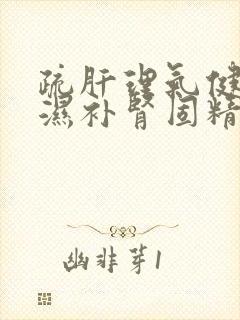 疏肝理氣健
濕补肾固精
幽非芽1